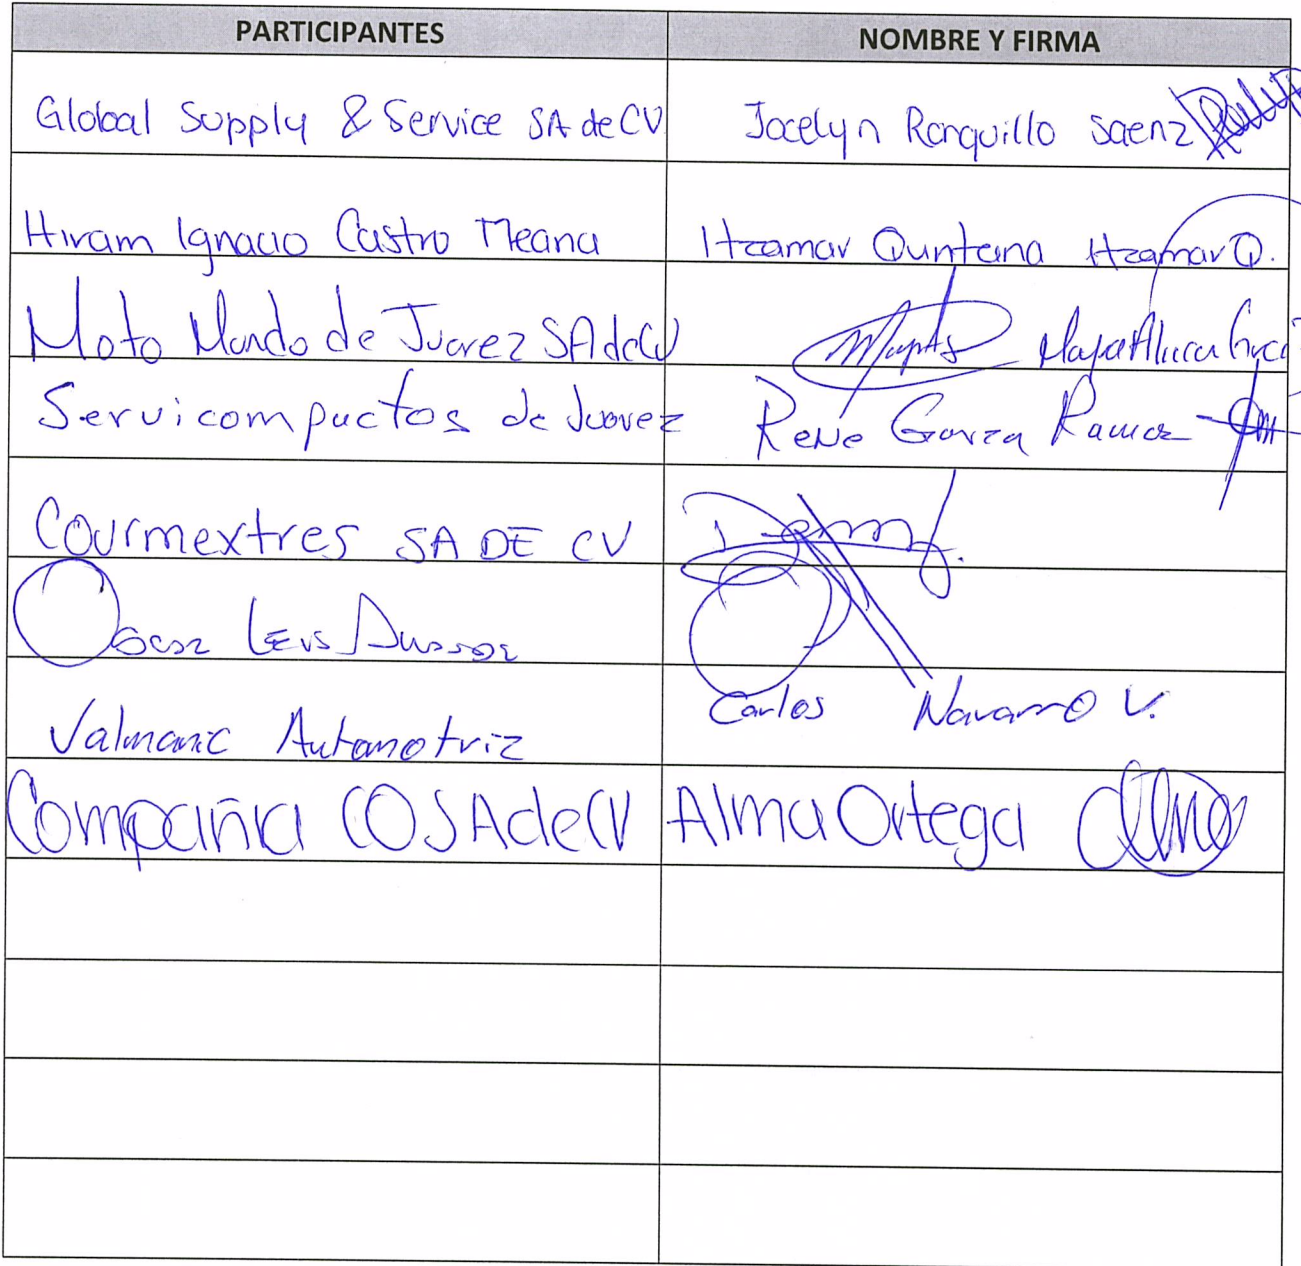 PARTICIPANTES NOMBRE Y FIRMA
Global Supply & Service SA de CV Jocelyn Ronquillo Saenz
Hiram Ignacio Castro Meana Itzamar Quintana Itzamar Q.
Moto Mundo de Juarez SA de CV
Servicompactos de Juarez Rene Garza Ramos
Courmextres SA DE CV
Carlos Navarro V.
Automotriz
Compañia CO SA de CV Alma Ortega Alma